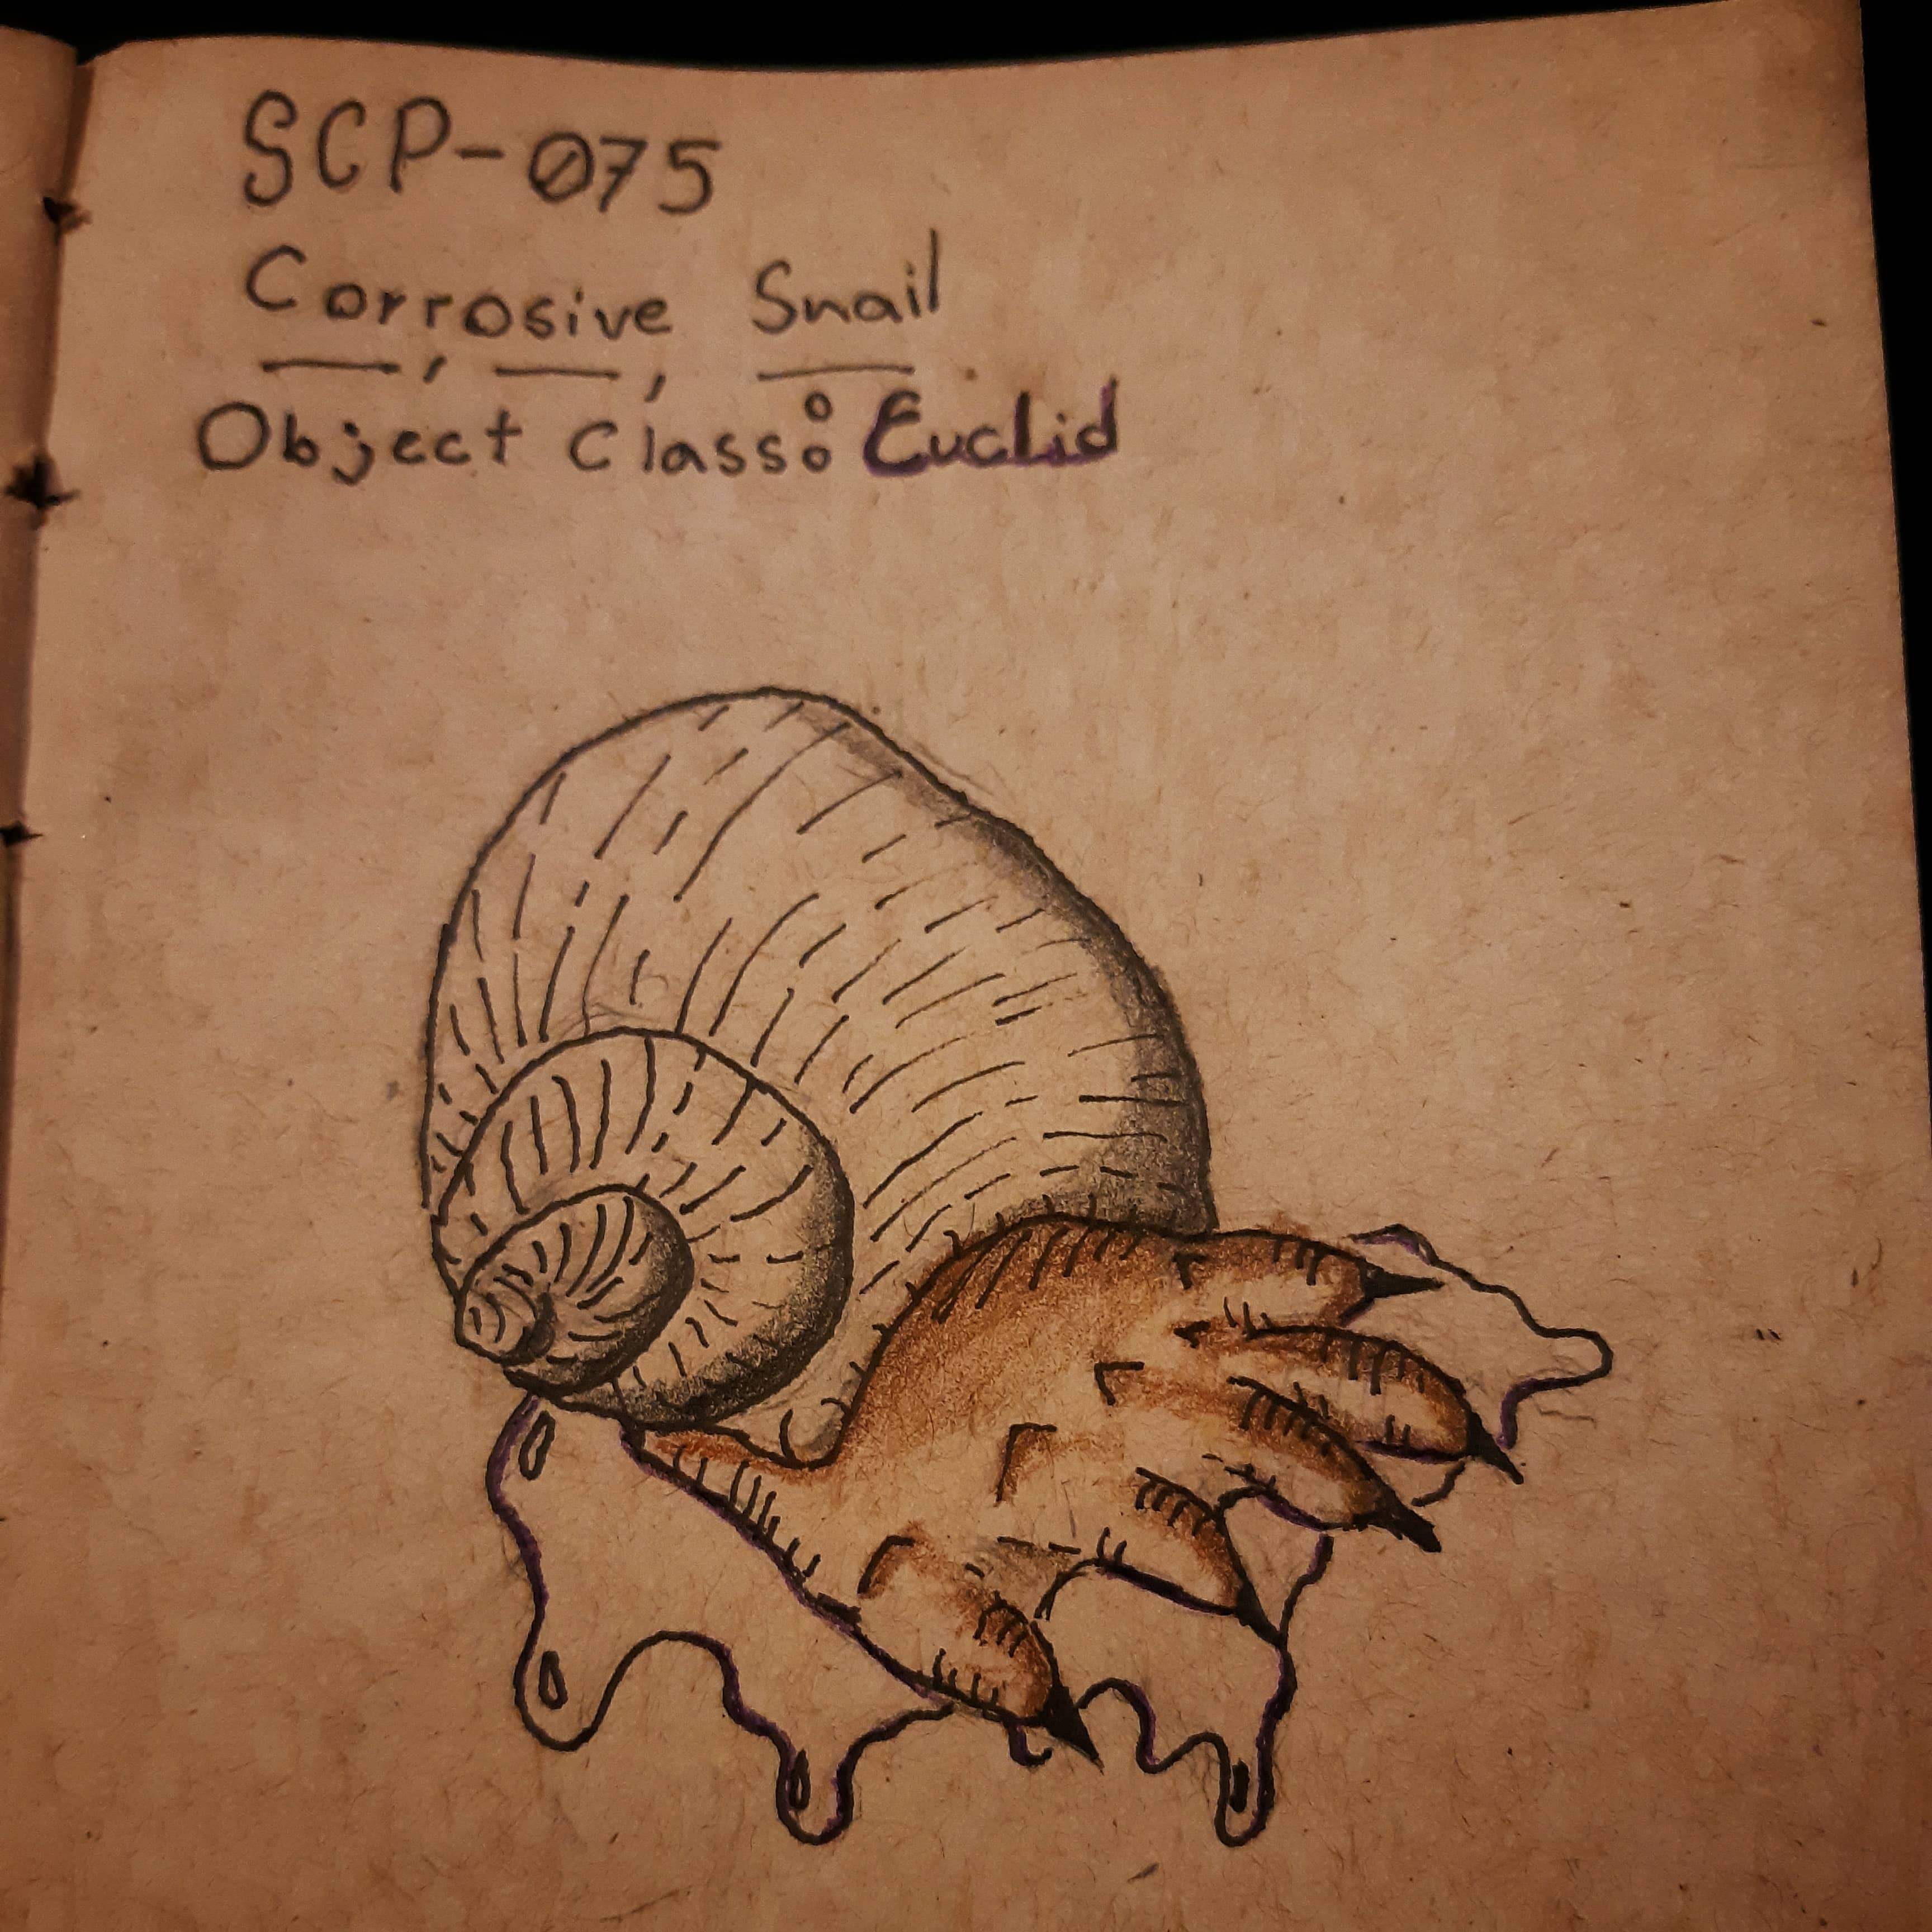 SCP-075
Corrosive Snail
Object Class: Euclid